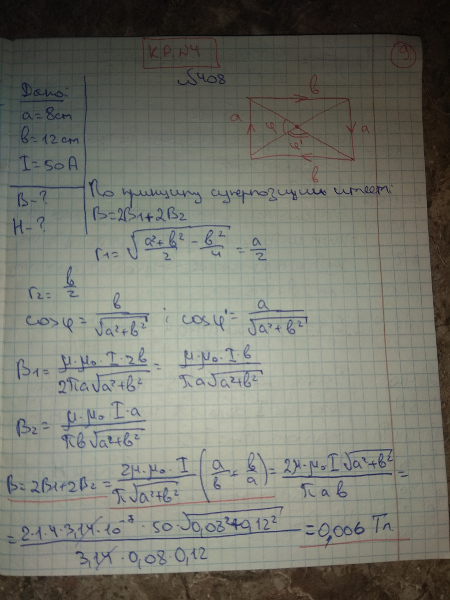 К.Р. №4
9
№408
Дано:
a = 8 cm
b = 12 cm
I = 50 A
B - ?
H - ?
b
a
a
φ
φ'
b
По принципу суперпозиции имеем:
B = 2B₁ + 2B₂
r₁ = √(a² + b²/2 - b²/4) = a/2
r₂ = b/2
cosφ = b/√(a² + b²) ; cosφ' = a/√(a² + b²)
B₁ = μ·μ₀·I·2b/2πa√(a² + b²) = μ·μ₀·I·b/πa√(a² + b²)
B₂ = μ·μ₀ I·a/πb√(a² + b²)
B = 2B₁ + 2B₂ = 2μ·μ₀·I/π√(a² + b²) (a/b + b/a) = 2μ·μ₀ I√(a² + b²)/πab =
= 2·1·4·3,14·10⁻⁷·50·√(0,08² + 0,12²)/3,14·0,08·0,12 = 0,006 Тл